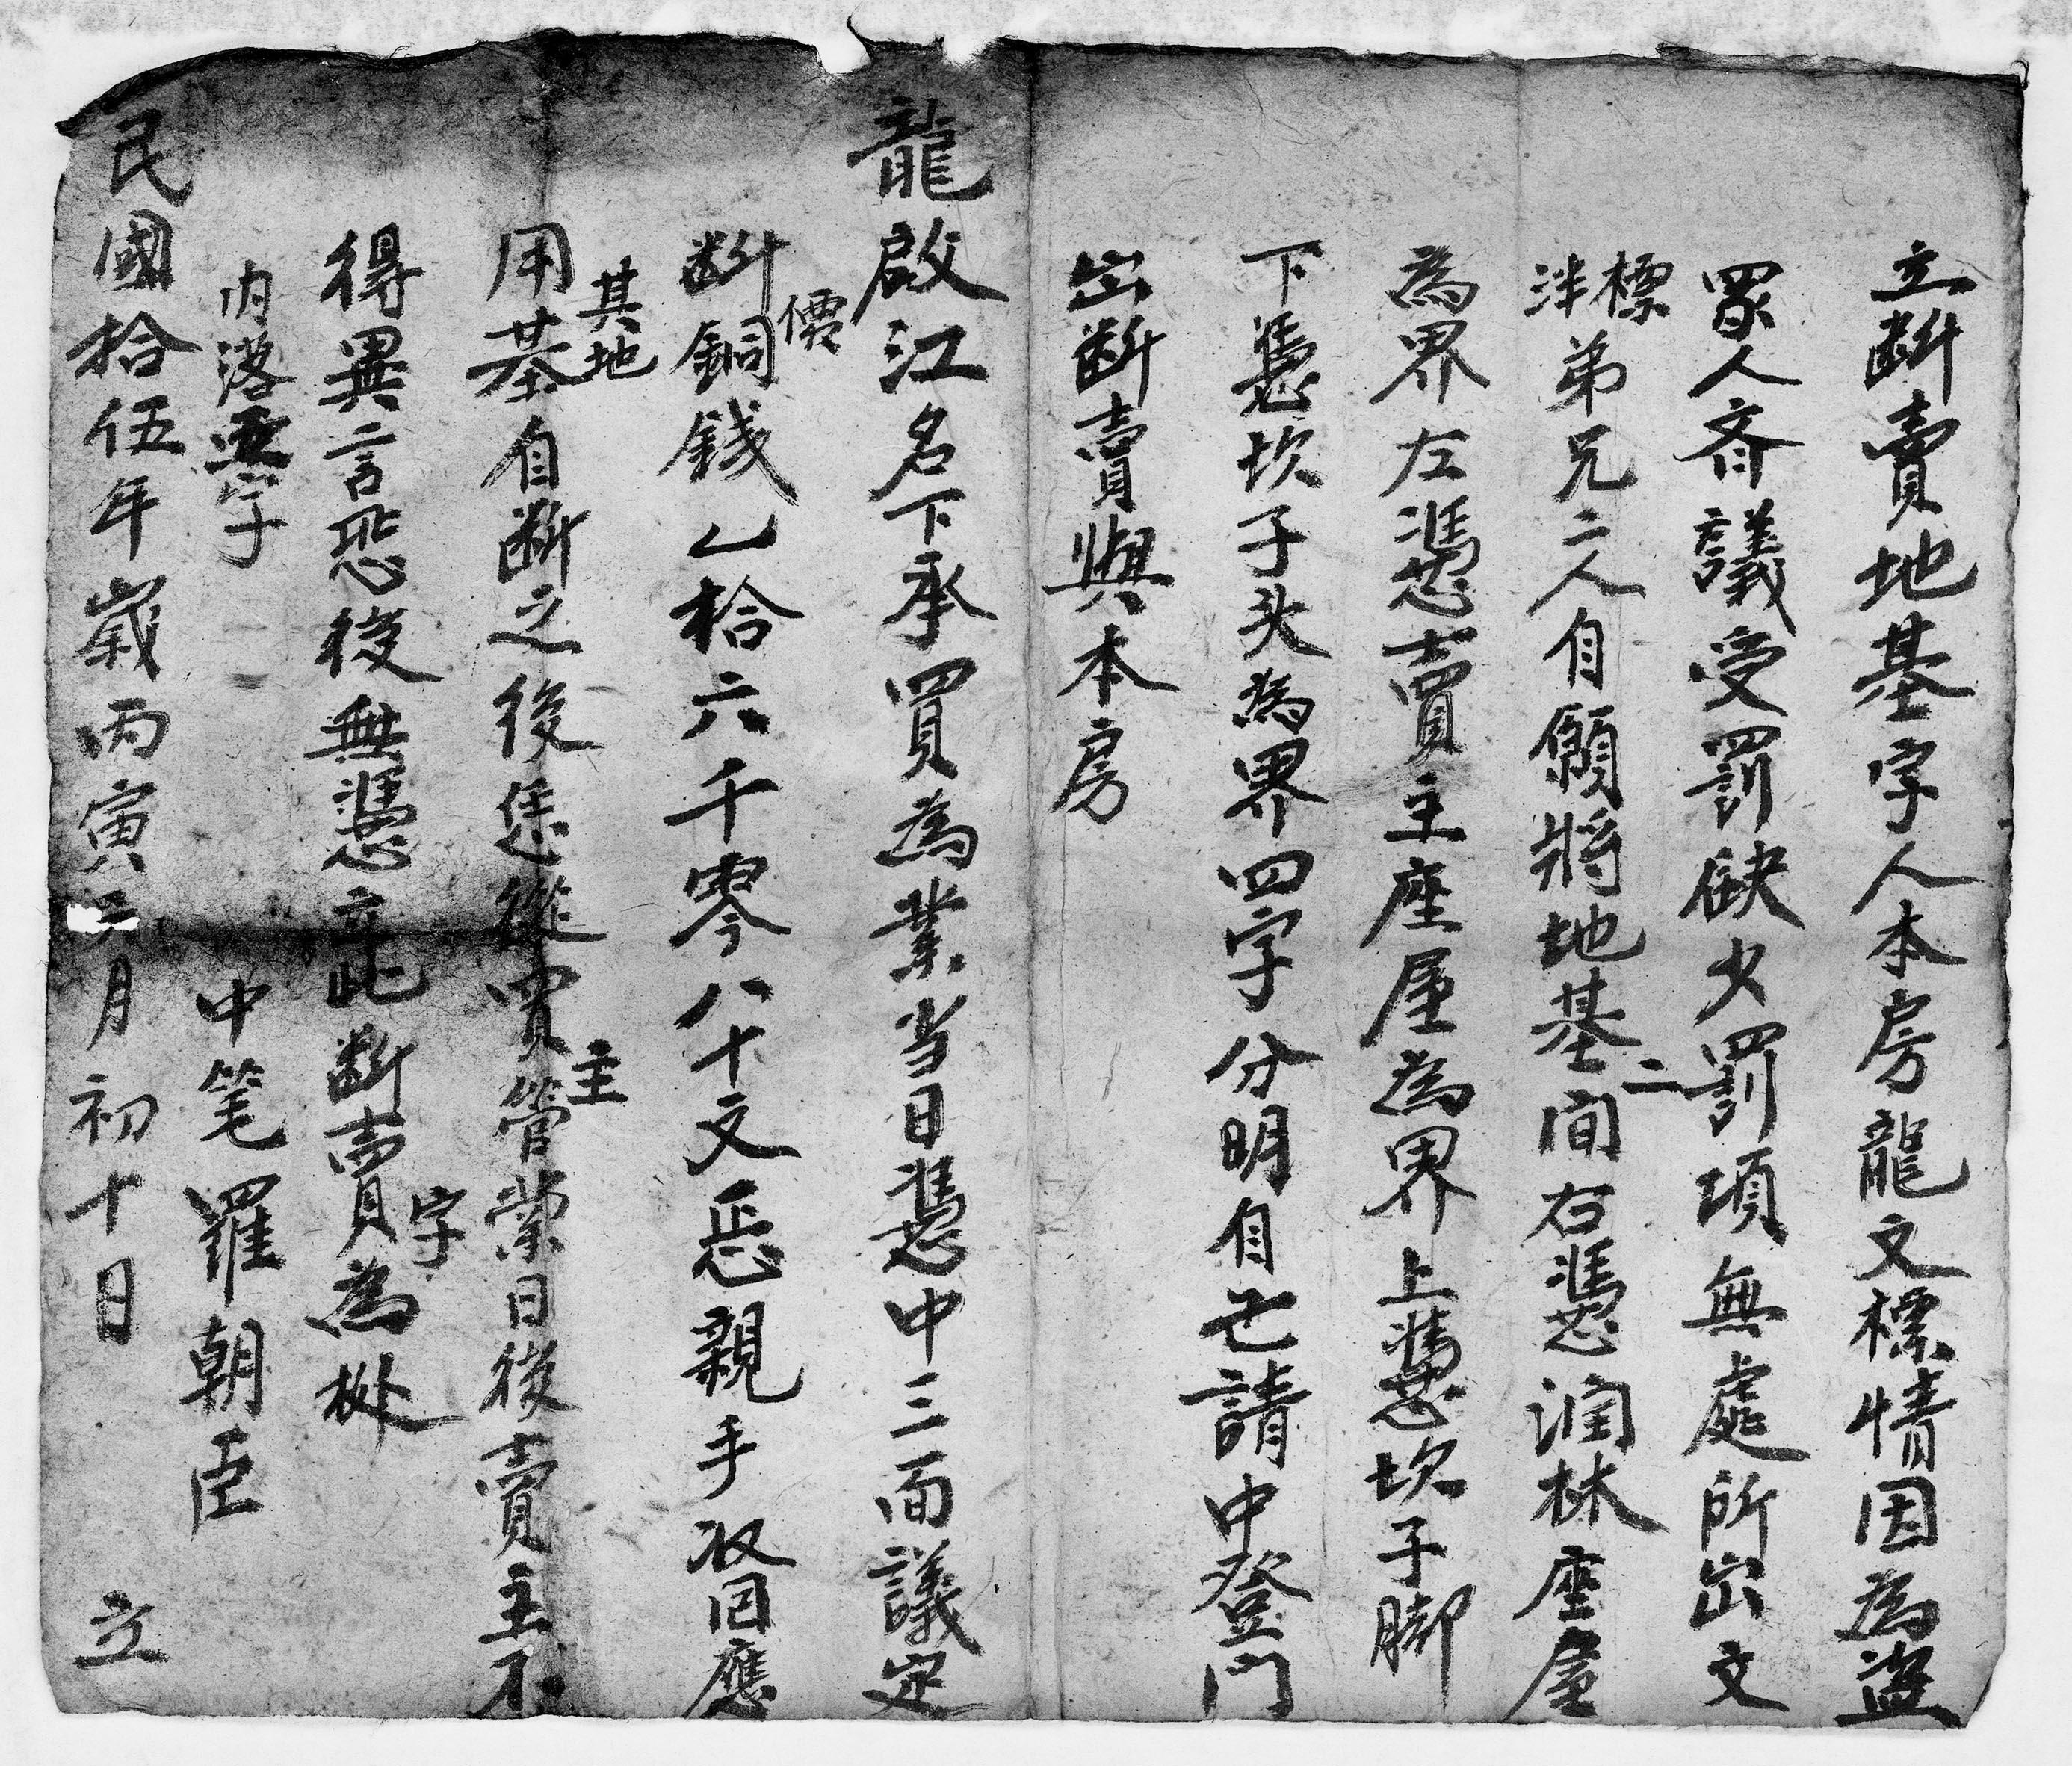 立断賣地基字人本房龍文標情因為盗
眾人斉議受罰缺少罰項無處所出文
標泮弟兄二人自願將地基二间右憑润林座屋
為界左憑賣主座屋為界上憑坎子脚
下憑坎子头為界四字分明自己請中登門
出断賣與本房
龍啟江名下承買為業当日憑中三面議定
断價銅錢乙拾六千零八十文恁親手收回應
用其地基自断之後恁從買主管業日後賣主不
得異言恐後無憑立此断賣字為據
内落亜字
中笔羅朝臣
民國拾伍年歲丙寅 月初十日 立